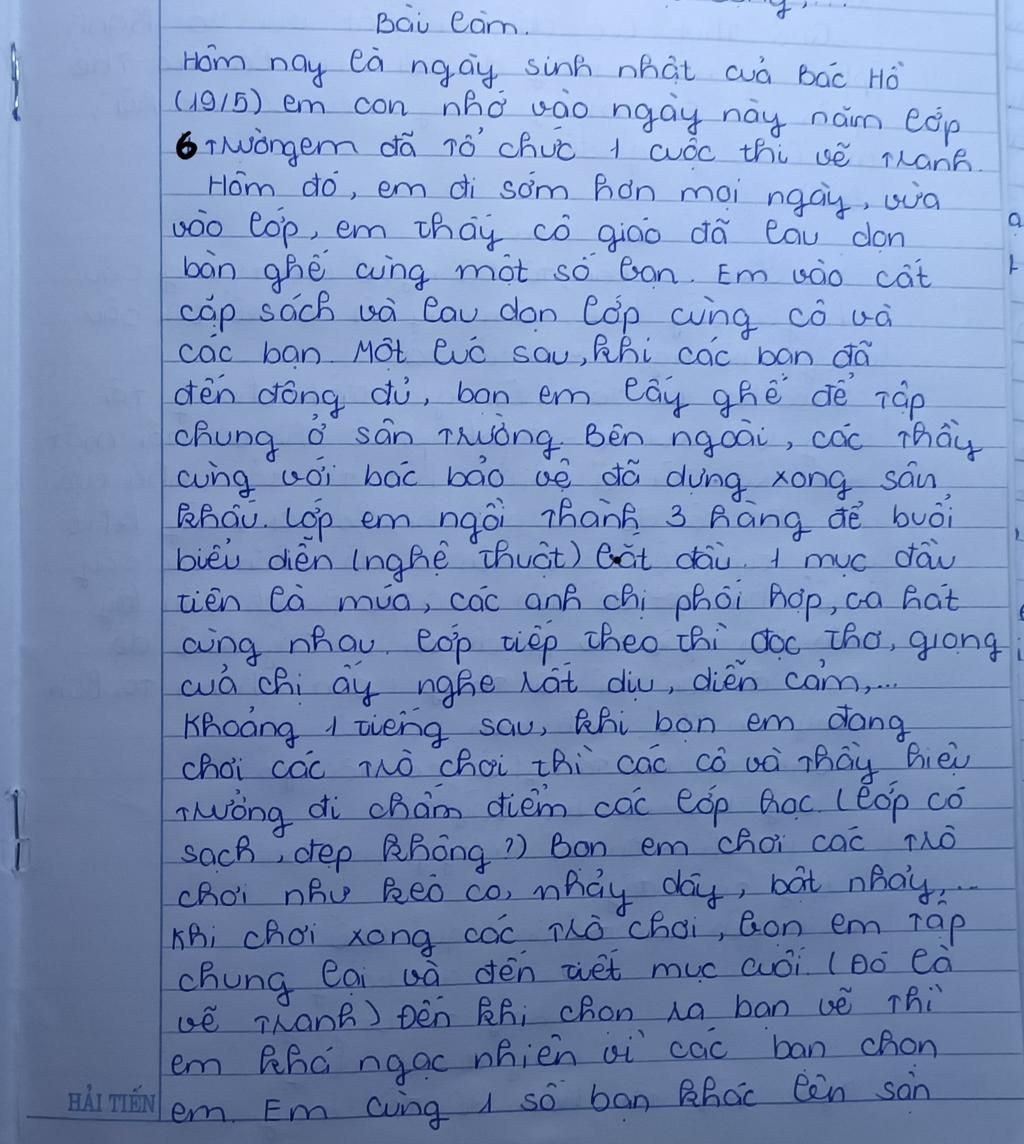 Bài làm.
Hôm nay là ngày sinh nhật của Bác Hồ
(19/5) em còn nhớ vào ngày này năm lớp
6 trường em đã tổ chức 1 cuộc thi vẽ tranh.
Hôm đó, em đi sớm hơn mọi ngày, vừa
vào lớp, em thấy cô giáo đã lau dọn
bàn ghế cùng một số bạn. Em vào cất
cặp sách và lau dọn lớp cùng cô và
các bạn. Một lúc sau, khi các bạn đã
đến đông đủ, bọn em lấy ghế để tập
chung ở sân trường. Bên ngoài, các thầy
cùng với bác bảo vệ đã dựng xong sân
khấu. Lớp em ngồi thành 3 hàng để buổi
biểu diễn (nghệ thuật) bắt đầu. 1 mục đầu
tiên là múa, các anh chị phối hợp, ca hát
cùng nhau. lớp tiếp theo thì đọc thơ, giọng
của chị ấy nghe rất dịu, diễn cảm,...
Khoảng 1 tiếng sau, khi bọn em đang
chơi các trò chơi thì các cô và thầy hiệu
trưởng đi chấm điểm các lớp học. (lớp có
sạch, đẹp không?) Bọn em chơi các trò
chơi như kéo co, nhảy dây, bật nhảy,...
Khi chơi xong các trò chơi, bọn em tập
chung lại và đến tiết mục cuối. (Đó là
vẽ tranh) Đến khi chọn ra bạn vẽ thì
em khá ngạc nhiên vì các bạn chọn
em. Em cùng 1 số bạn khác lên sân
HẢI TIẾN